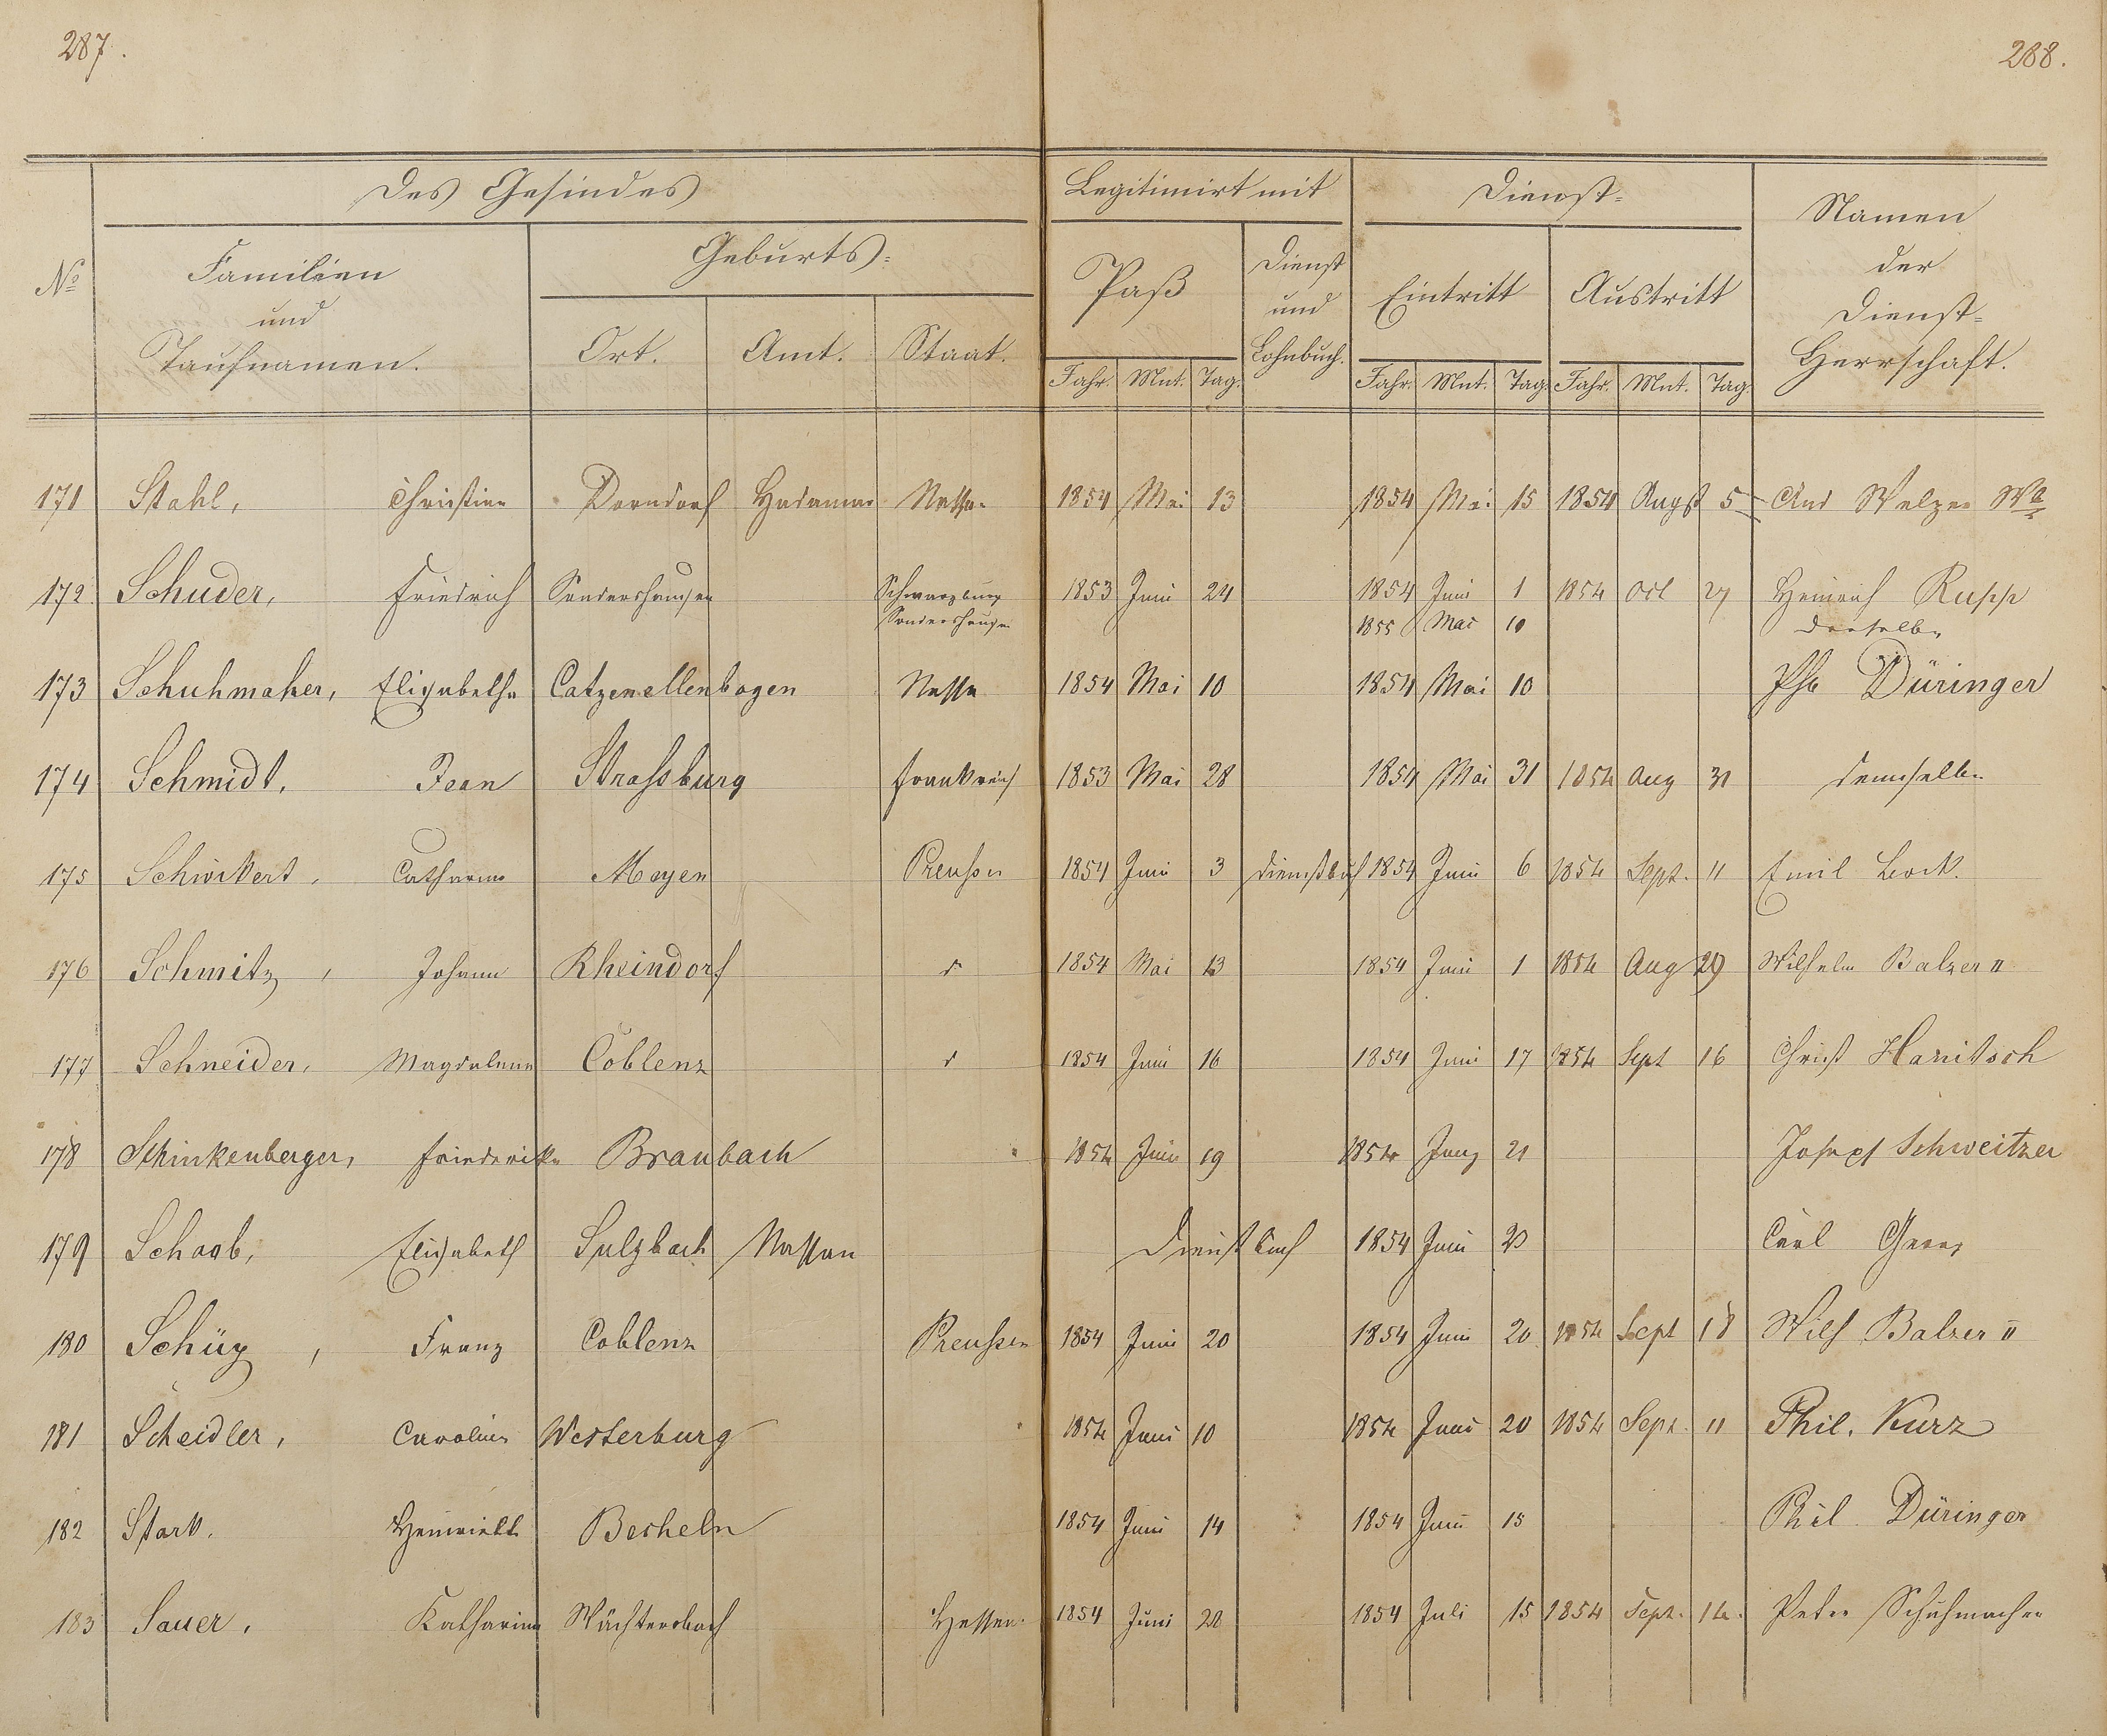 287.
288.
Des Gesindes
Legitimirt mit
Dienst=
Namen der Dienst= Herrschaft.
No
Familien und Taufnamen.
Geburts=
Paß
Dienst und Lohnbuch.
Eintritt
Austritt
Ort. Amt. Staat.
Jahr. Mnt. Tag. Jahr. Mnt. Tag. Jahr. Mnt. Tag.
171 Stahl, Christine Dorndorf Hadamar Nassau 1854 Mai 13 1854 Mai 15 1854 Augst 5
172 Schuder, Friedrich Sondershausen Schwarzburg 1853 Juni 24 1854 Juni 1 1854 Oct 27 Heinrich Rupp
Sondershausen 1855 Mai 10 derselbe
173 Schuhmaher, Elisabetha Catzenellenbogen Nassau 1854 Mai 10 1854 Mai 10 Düringer
174 Schmidt, Jean Strassburg Frankreich 1853 Mai 28 1854 Mai 31 1854 Aug 31 demselben
175 Schwikert, Catharina Mayen Preussen 1854 Juni 3 Dienstbuch 1854 Juni 6 1854 Sept. 11 Emil Bock.
176 Schmitz, Johann Rheindorf 1854 Mai 13 1854 Juni 1 1854 Aug 29 Wilhelm Balzer II
177 Schneider, Magdalena Coblenz 1854 Juni 16 1854 Juni 17 1854 Sept 16 Christ Hanitsch
178 Schinkenberger, Friederike Braubach 1854 Juni 19 1854 Juny 21 Joseph Schweitzer
179 Schaab, Elisabeth Sulzbach Nassau Dienstbuch 1854 Juni 20 Carl
180 Schüz, Franz Coblenz Preussen 1854 Juni 20 1854 Juni 20 1854 Sept 18 Wilh Balzer II
181 Scheidler, Caroline Westerburg 1854 Juni 10 1854 Juni 20 1854 Sept. 11 Phil. Kurz
182 Stark, Henriette Becheln 1854 Juni 14 1854 Juni 15 Phil Düringer
183 Sauer, Katharina Wächtersbach Hessen 1854 Juni 20 1854 Juli 15 1854 Sept. 14. Peter Schuhmacher